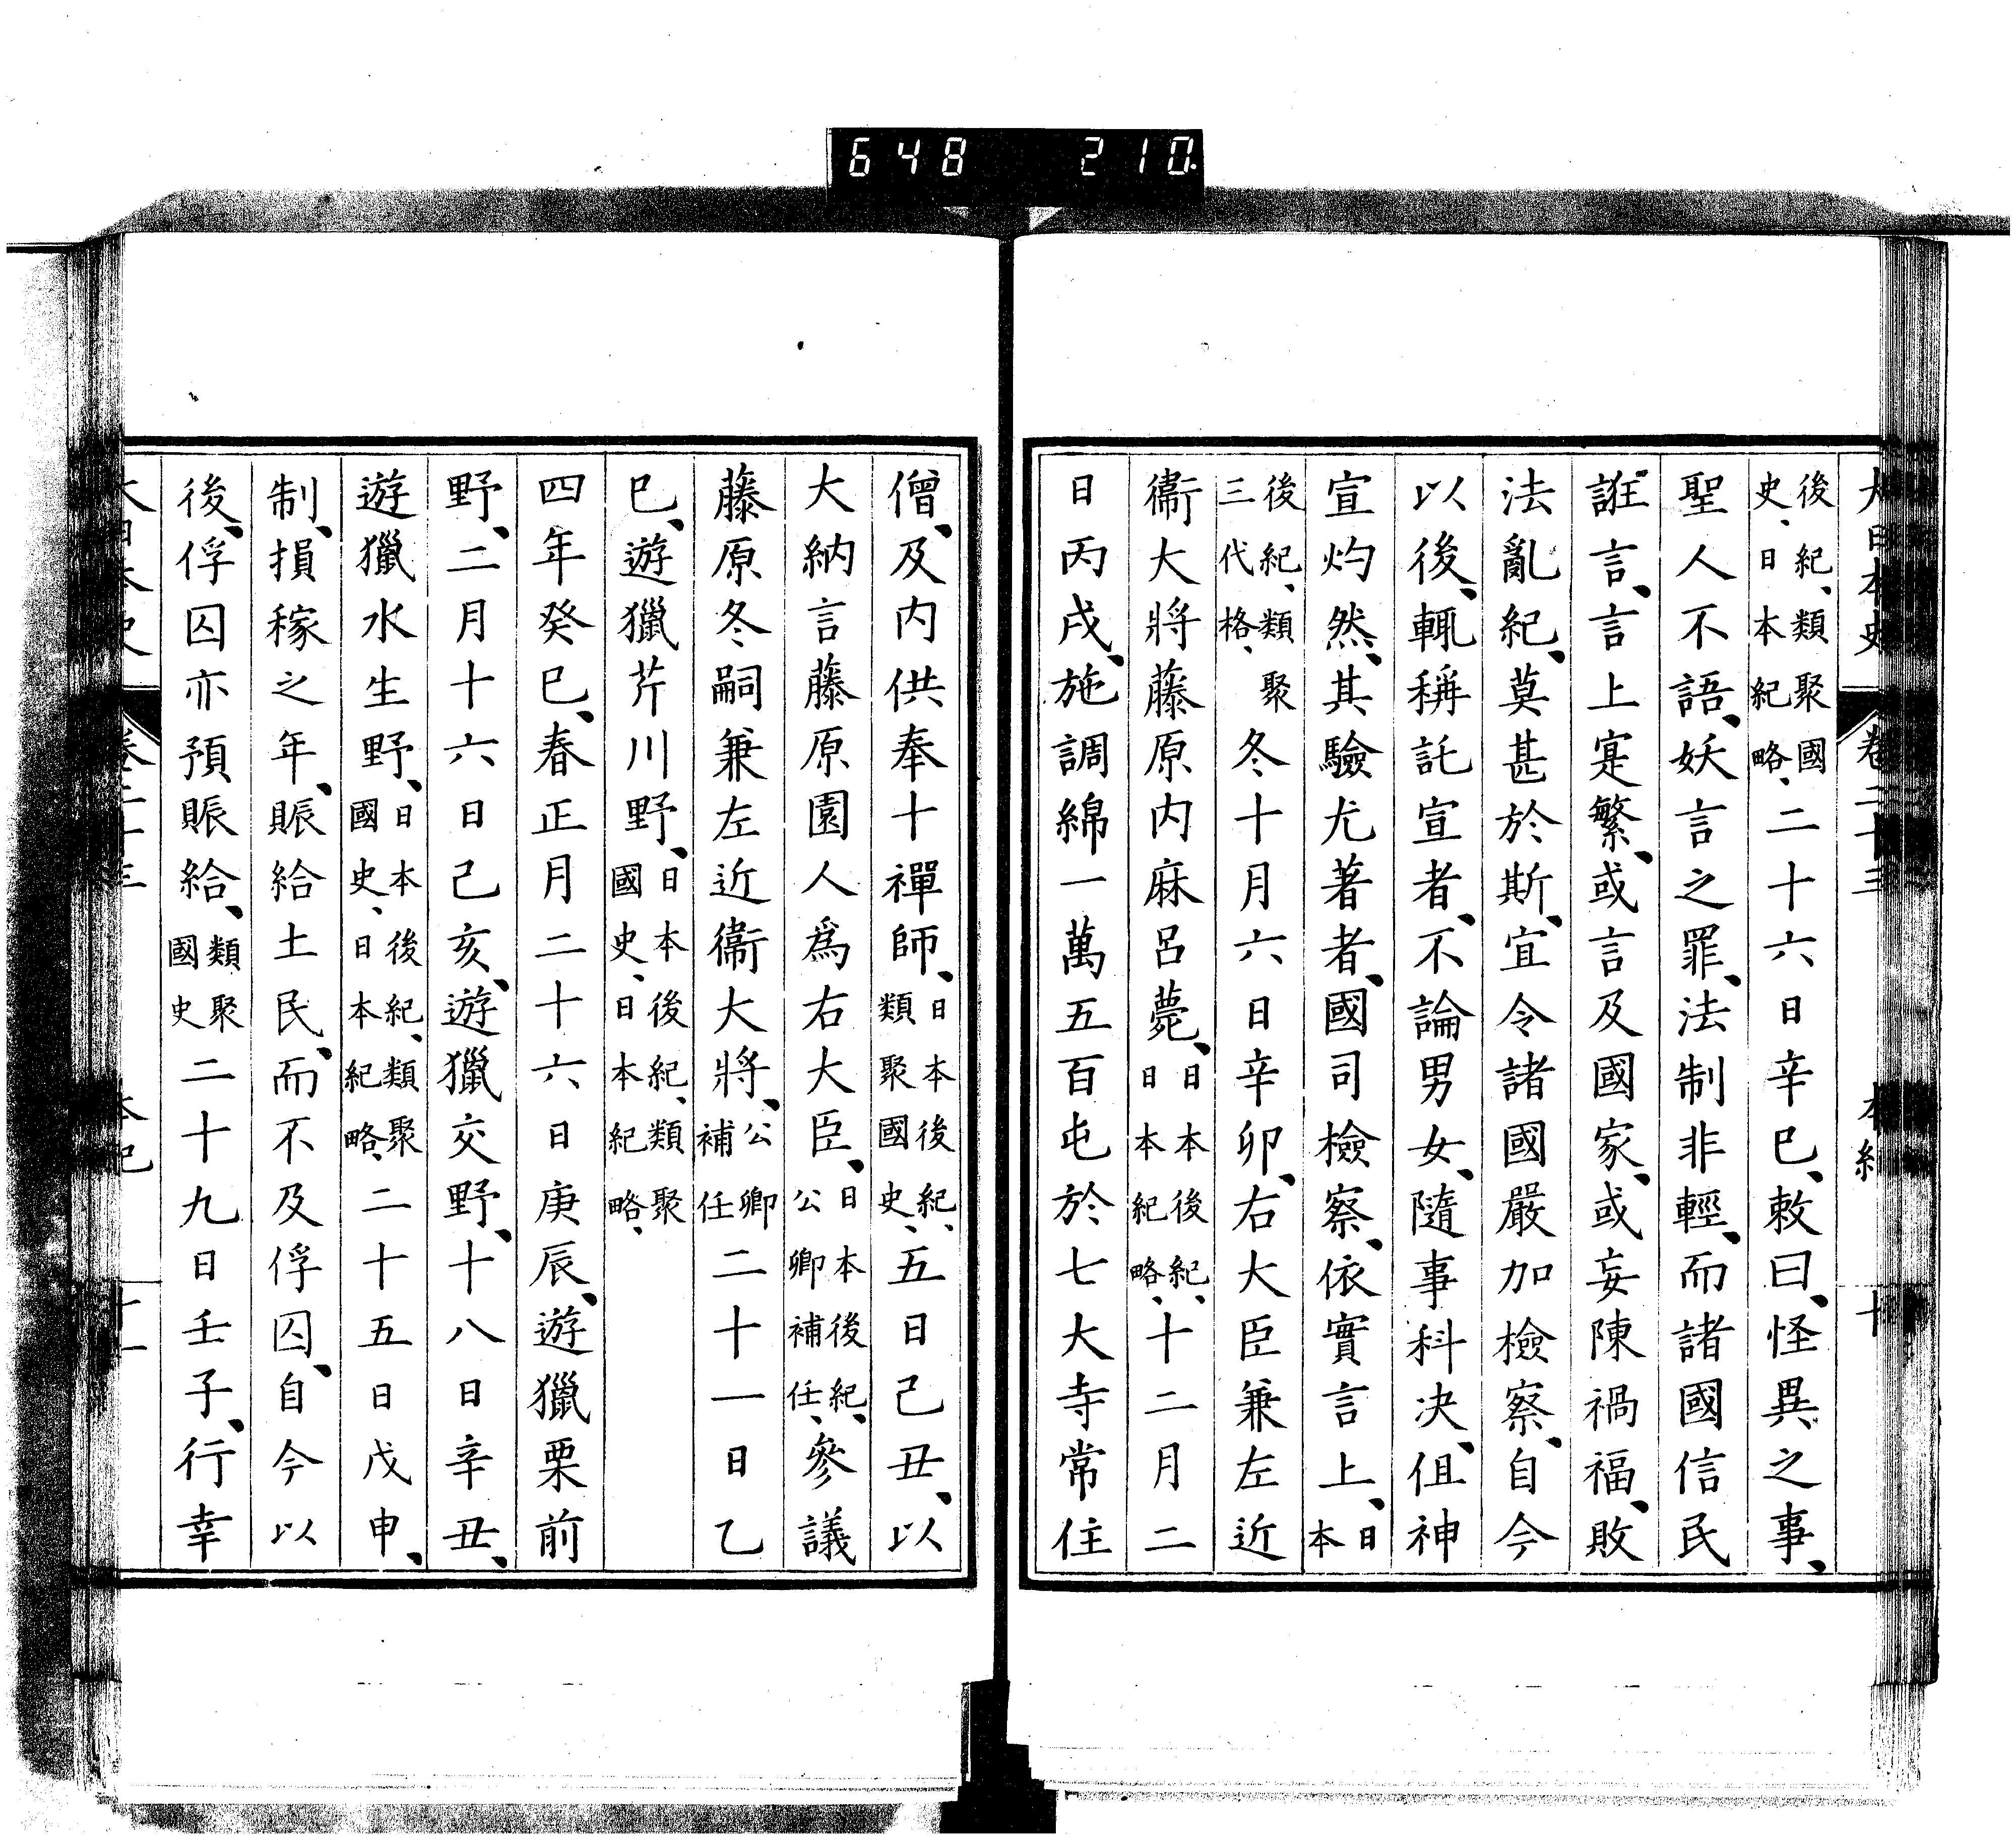 648 210
大日本史 卷二十三 本紀 十
後紀、類聚國史、日本紀略、二十六日辛巳、敕曰、怪異之事、
聖人不語、妖言之罪、法制非輕、而諸國信民
誑言、言上寔繁、或言及國家、或妄陳禍福、敗
法亂紀、莫甚於斯、宜令諸國嚴加檢察、自今
以後、輒稱託宣者、不論男女、隨事科决、但神
宣灼然、其驗尤著者、國司檢察、依實言上、日本
後紀、類聚三代格、冬十月六日辛卯、右大臣兼左近
衞大將藤原内麻呂薨、日本後紀、日本紀略、十二月二
日丙戌、施調綿一萬五百屯於七大寺常住
僧、及内供奉十禪師、日本後紀、類聚國史、五日己丑、以
大納言藤原園人爲右大臣、日本後紀、公卿補任、參議
藤原冬嗣兼左近衞大將、公卿補任二十一日乙
巳、遊獵芹川野、日本後紀、類聚國史、日本紀略、
四年癸巳、春正月二十六日庚辰、遊獵栗前
野、二月十六日己亥、遊獵交野、十八日辛丑、
遊獵水生野、日本後紀、類聚國史、日本紀略、二十五日戊申、
制、損稼之年、賑給土民、而不及俘囚、自今以
後、俘囚亦預賑給、類聚國史二十九日壬子、行幸
大日本史 卷二十三 本紀 十一